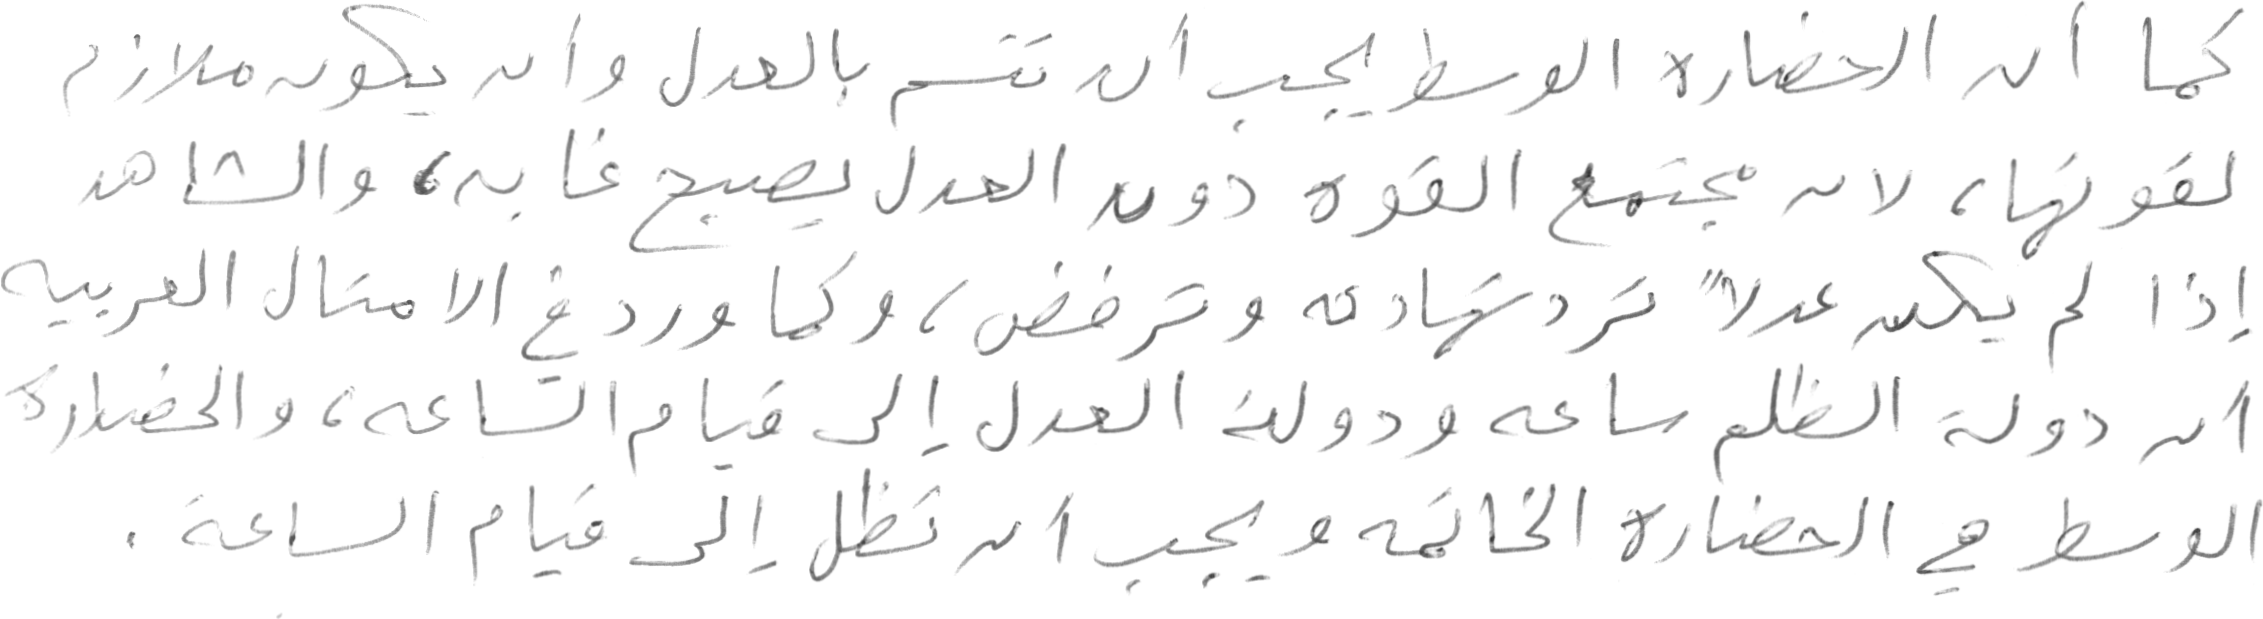 كما أن الحضاره الوسط يجب أن تتسم بالعدل وأن يكون ملازم
لقوتها، لان مجتمع القوه دون العدل يصبح غابه، والشاهد
إذا لم يكن عدلاً ترد شهادته وترفض، وكما ورد في الامثال العربيه
أن دولة الظلم ساعه ودولة العدل إلى قيام الساعه، والحضارة
الوسط هي الحضاره الخاتمه ويجب أن تظل إلى قيام الساعة.